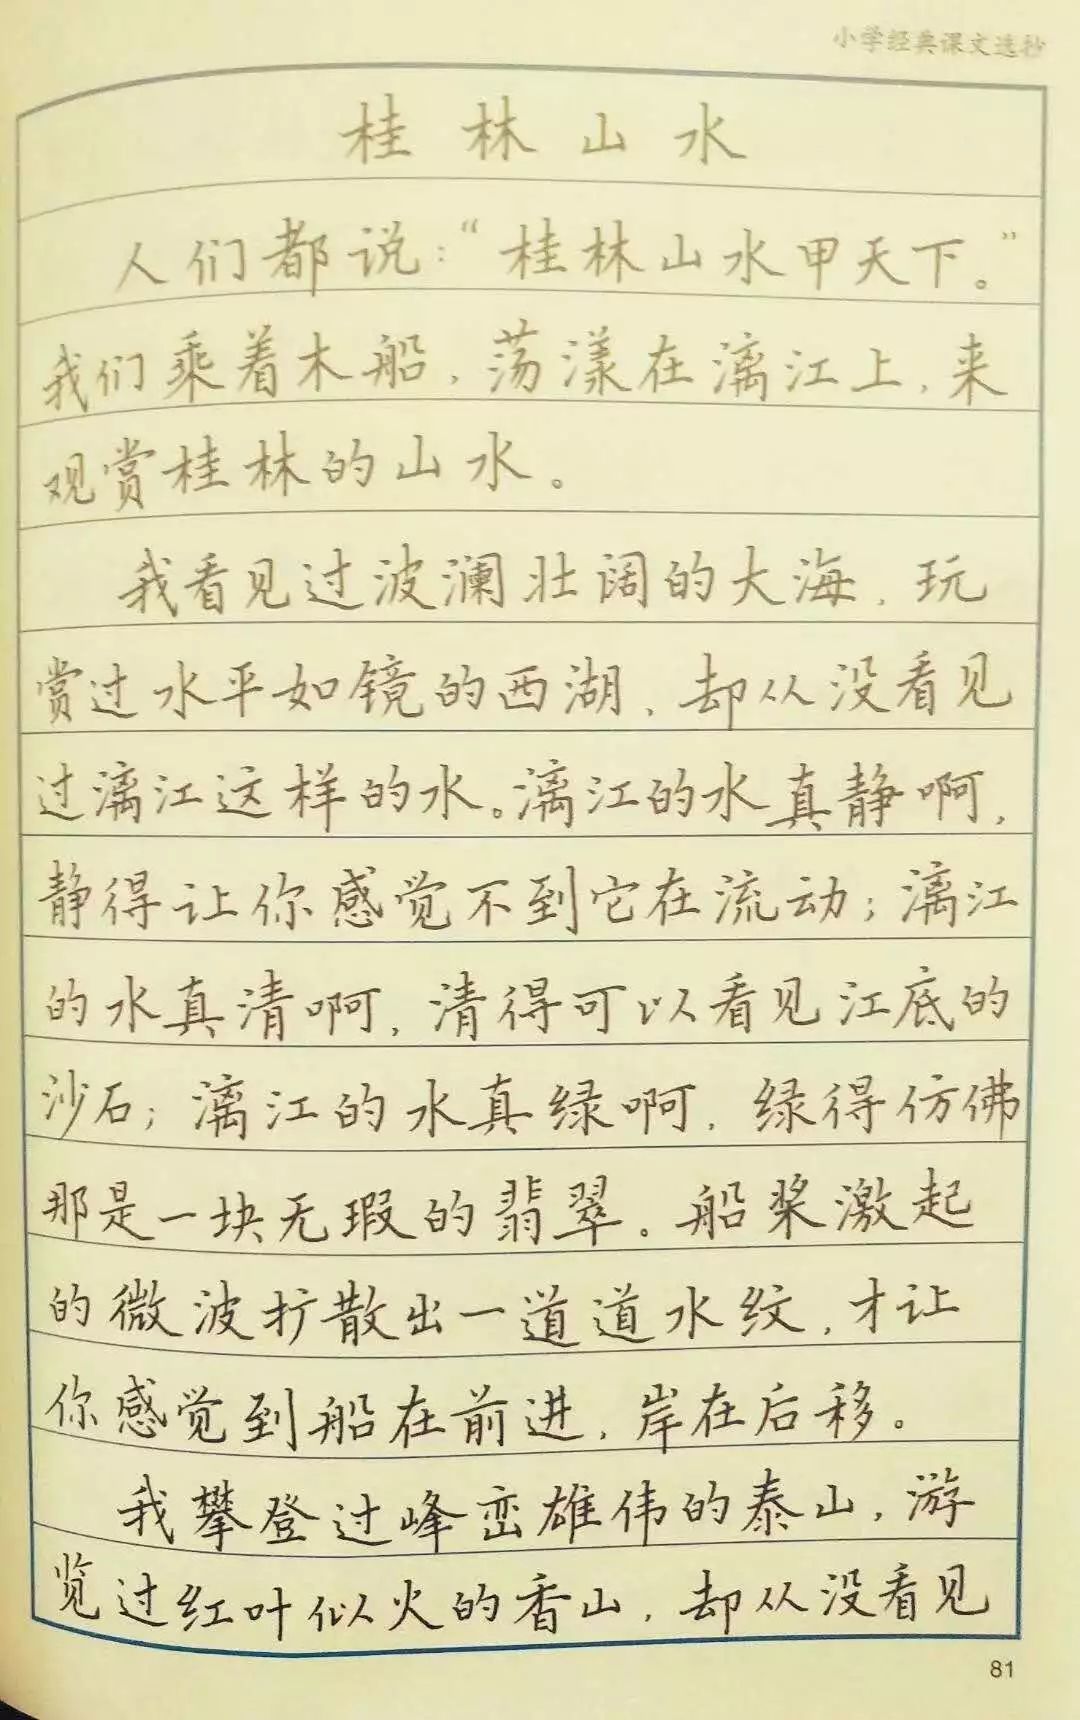 小学经典课文选抄
桂林山水
人们都说：“桂林山水甲天下。”
我们乘着木船，荡漾在漓江上，来
观赏桂林的山水。
我看见过波澜壮阔的大海，玩
赏过水平如镜的西湖，却从没看见
过漓江这样的水。漓江的水真静啊，
静得让你感觉不到它在流动；漓江
的水真清啊，清得可以看见江底的
沙石；漓江的水真绿啊，绿得仿佛
那是一块无瑕的翡翠。船桨激起
的微波扩散出一道道水纹，才让
你感觉到船在前进，岸在后移。
我攀登过峰峦雄伟的泰山，游
览过红叶似火的香山，却从没看见
81